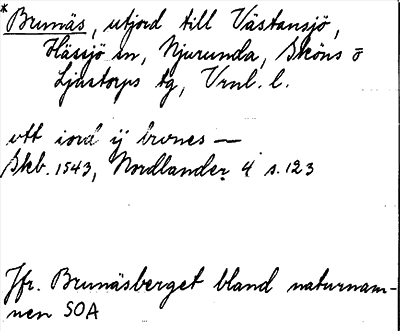 *Brunäs, utjord till Västansjö,
Hässjö sn, Njurunda, Sköns o
Ljustorps tg, Vrnl. l.
vtt iord ij brvnes —
Skb. 1543, Nordlander 4 s. 123
Jfr. Brunäsberget bland naturnam-
nen SOA